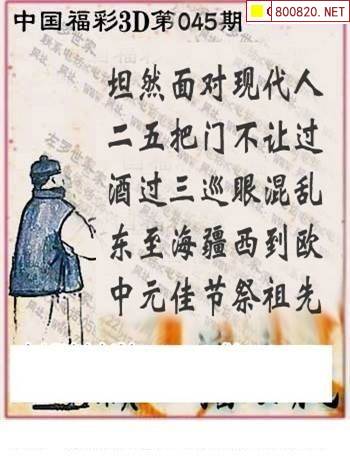 中国福彩3D第045期
800820.NET
坦然面对现代人
二五把门不让过
酒过三巡眼混乱
东至海疆西到欧
中元佳节祭祖先